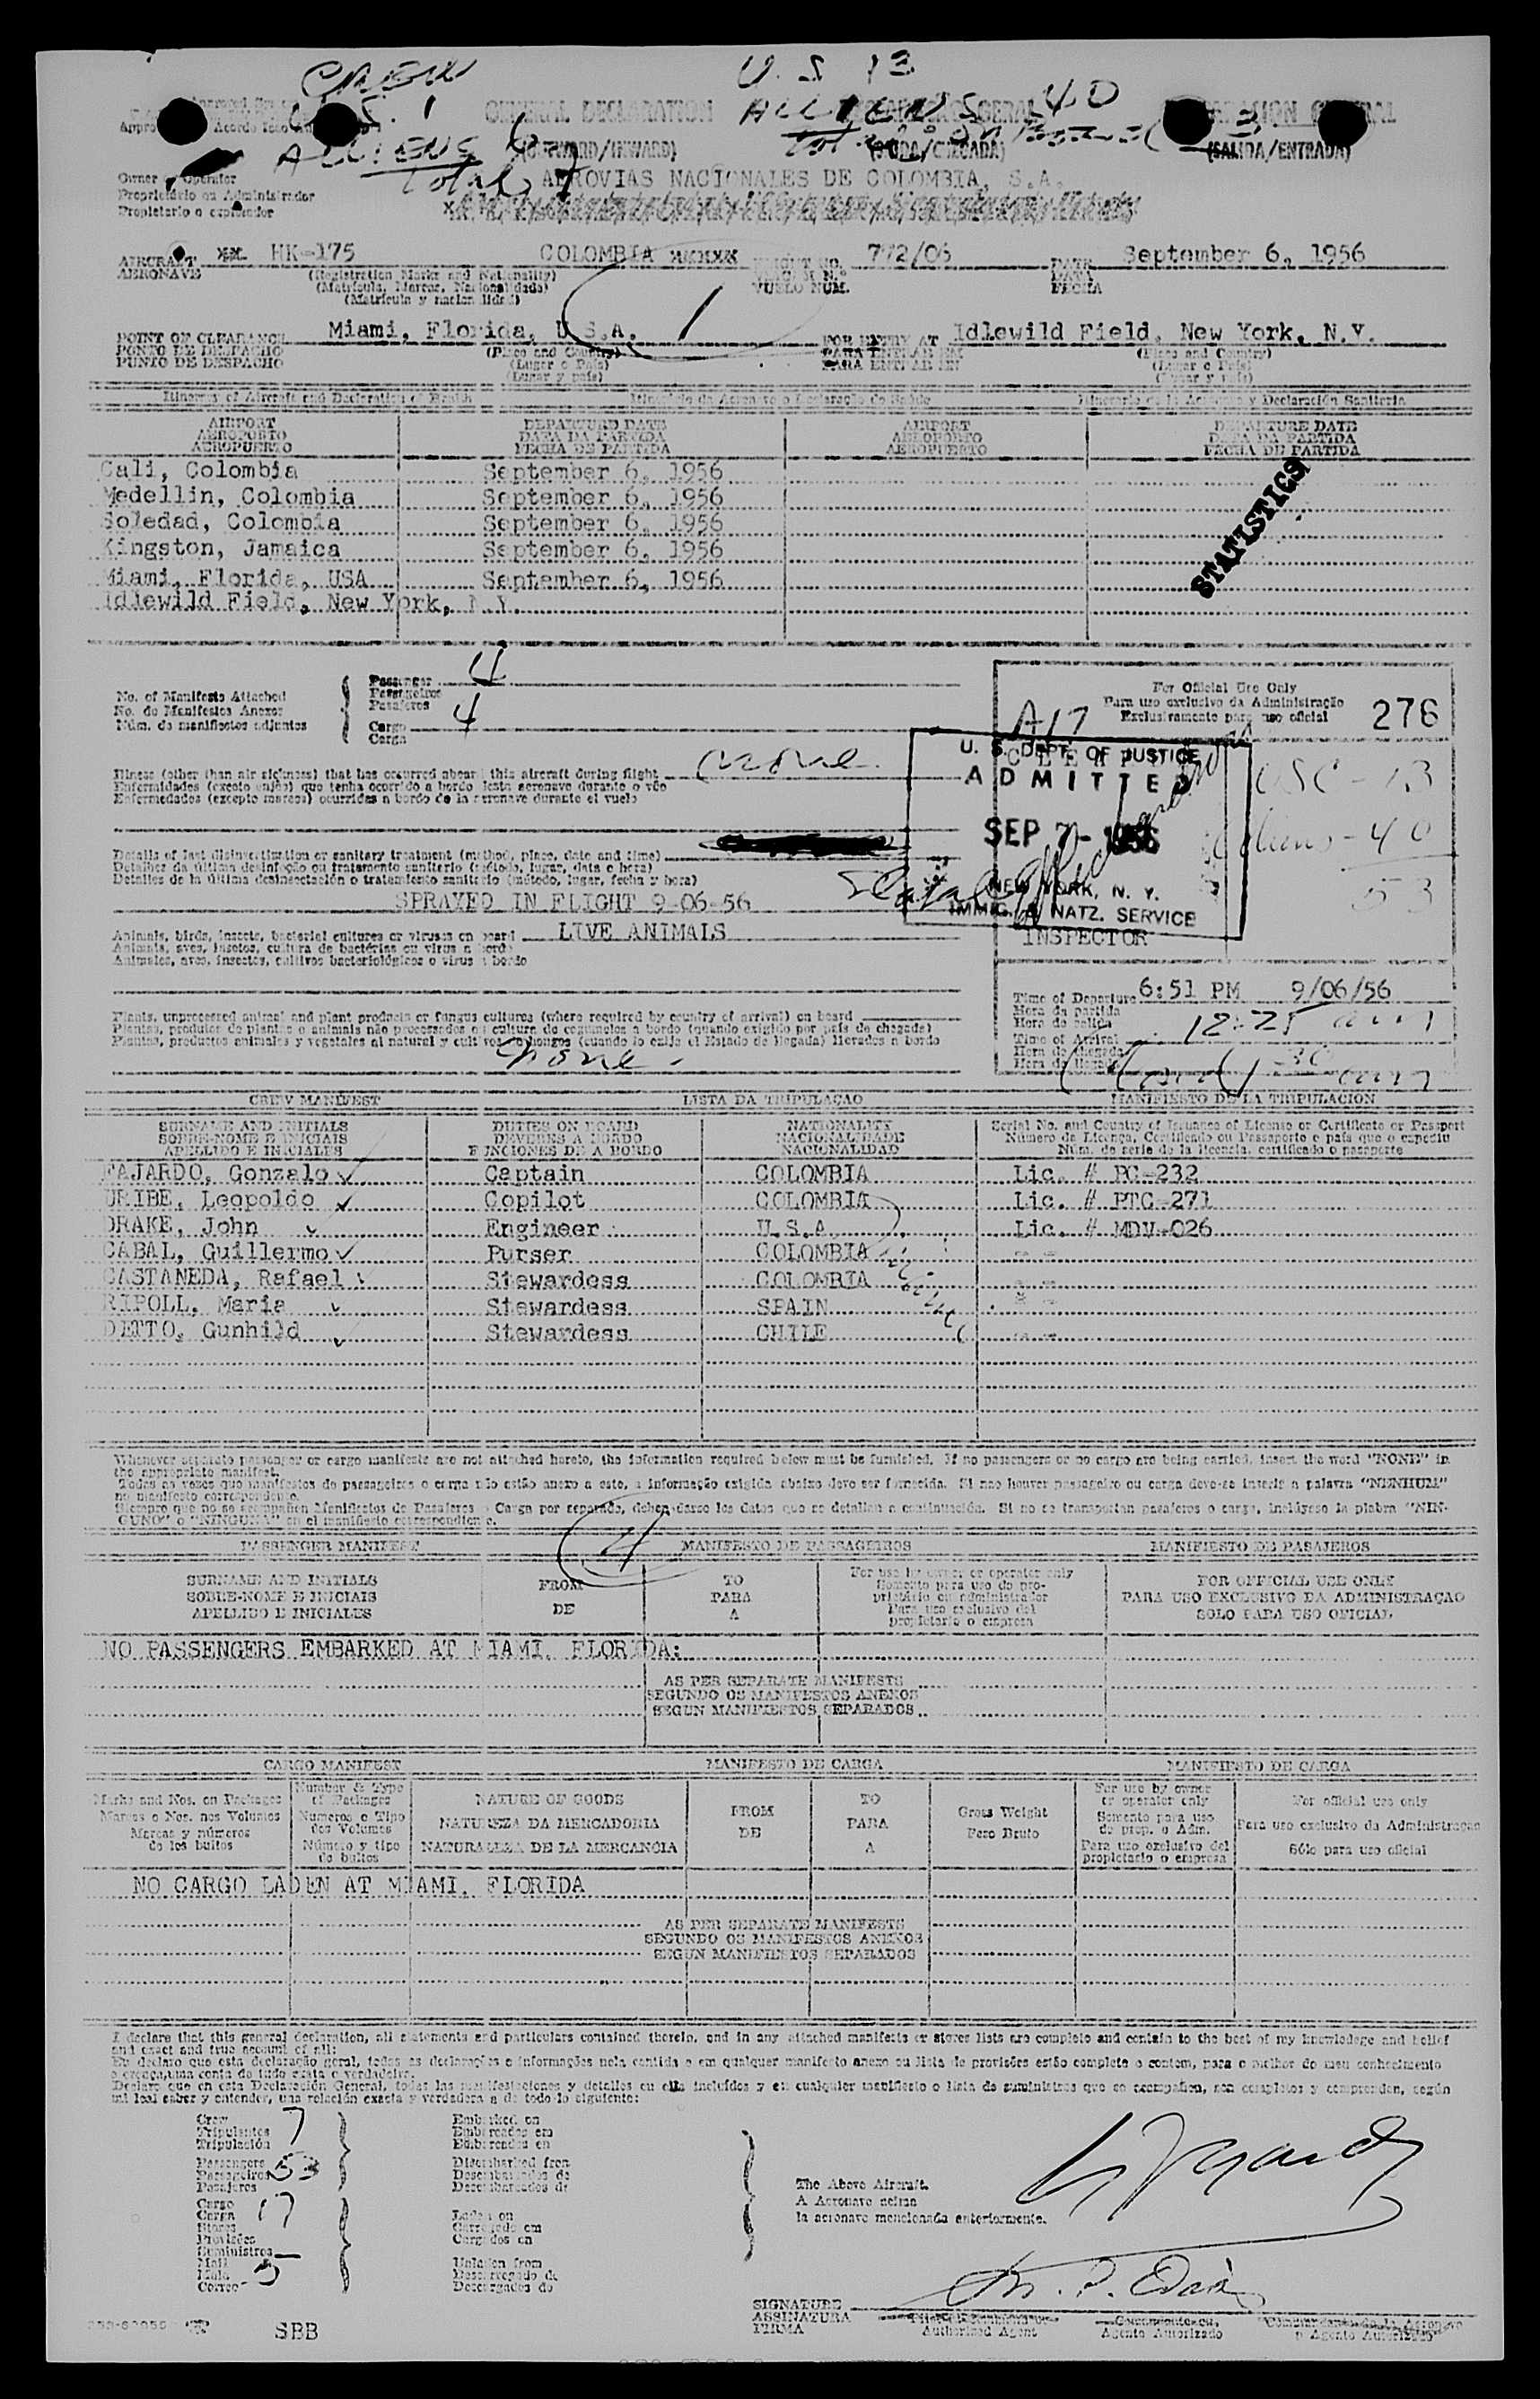 CREW
U.S. 13
U.S. 1
GENERAL DECLARATION
ALLIENS 40
ALLIENS 6
(OUTWARD/INWARD)
(SALIDA/ENTRADA)
Total 7
Owner or Operator
Proprietário ou Administrador
Propietario o explotador
AEROVIAS NACIONALES DE COLOMBIA, S.A.
AIRCRAFT
AERONAVE
HK-175
COLOMBIA
FLIGHT NO.
VUELO NUM.
772/06
DATE
DATA
FECHA
September 6, 1956
(Registration Marks and Nationality)
(Matrícula, Marcas, Nacionalidade)
(Matrícula y nacionalidad)
1
POINT OF CLEARANCE
PONTO DE DESPACHO
PUNTO DE DESPACHO
Miami, Florida, U.S.A.
(Place and Country)
(Lugar e País)
(Lugar y país)
FOR ENTRY AT
PARA ENTRAR EM
PARA ENTRAR EN
Idlewild Field, New York, N.Y.
(Place and Country)
(Lugar e País)
(Lugar y país)
Itinerary of Aircraft and Declaration of Health
Itinerario de la Aeronave y Declaración Sanitaria
AIRPORT
AEROPORTO
AEROPUERTO
DEPARTURE DATE
DATA DA PARTIDA
FECHA DE PARTIDA
AIRPORT
AEROPORTO
AEROPUERTO
DEPARTURE DATE
DATA DA PARTIDA
FECHA DE PARTIDA
Cali, Colombia September 6, 1956
Medellin, Colombia September 6, 1956
Soledad, Colombia September 6, 1956
Kingston, Jamaica September 6, 1956
Miami, Florida, USA September 6, 1956
Idlewild Field, New York, N.Y.
STATISTICS
No. of Manifests Attached
No. de Manifestos Anexos
Núm. de manifiestos adjuntos
Passenger
Passageiros
Pasajeros
4
Cargo
Carga
4
For Official Use Only
Para uso exclusivo da Administração
Exclusivamente para uso oficial
276
A17
U. S. DEPT. OF JUSTICE
ADMITTED
SEP 7 - 1956
NEW YORK, N. Y.
IMMIG. & NATZ. SERVICE
INSPECTOR
USC - 13
Aliens - 40
53
Illness (other than air sickness) that has occurred aboard this aircraft during flight
none
Enfermidades (exceto enjôo) que tenha ocorrido a bordo desta aeronave durante o vôo
Enfermedades (excepto mareos) ocurridas a bordo de la aeronave durante el vuelo
Details of last disinsectization or sanitary treatment (method, place, date and time)
Detalhes da última desinfeção ou tratamento sanitario (método, lugar, data e hora)
Detalles de la última desinsectación o tratamiento sanitario (método, lugar, fecha y hora)
SPRAYED IN FLIGHT 9-06-56
Animals, birds, insects, bacterial cultures or viruses on board
LIVE ANIMALS
Animais, aves, insetos, cultura de bactérias ou virus a bordo
Animales, aves, insectos, cultivos bacteriológicos o virus a bordo
Time of Departure
Hora da partida
Hora de salida
6:51 PM 9/06/56
Time of Arrival
Hora da chegada
Hora de llegada
12:25 am
Plants, unprocessed animal and plant products or fungus cultures (where required by country of arrival) on board
Plantas, produtos de plantas o animais não processados ou cultura de cogumelos a bordo (quando exigido por país de chegada)
Plantas, productos animales y vegetales al natural y cultivos de hongos (cuando lo exija el Estado de llegada) llevados a bordo
none
CREW MANIFEST
LISTA DA TRIPULAÇAO
MANIFIESTO DE LA TRIPULACION
SURNAME AND INITIALS
SOBRE-NOME E INICIAIS
APELLIDO E INICIALES
DUTIES ON BOARD
DEVERES A BORDO
FUNCIONES DE A BORDO
NATIONALITY
NACIONALIDADE
NACIONALIDAD
Serial No. and Country of Issuance of License or Certificate or Passport
Número da Licença, Certificado ou Passaporte e país que o expediu
Núm. de serie de la licencia, certificado o pasaporte
FAJARDO, Gonzalo Captain COLOMBIA Lic. # PC-232
URIBE, Leopoldo Copilot COLOMBIA Lic. # PTC-271
DRAKE, John Engineer U.S.A. Lic. # MDV-026
CABAL, Guillermo Purser COLOMBIA
CASTANEDA, Rafael Stewardess COLOMBIA
RIPOLL, Maria Stewardess SPAIN
DETTO, Gunhild Stewardess CHILE
Whenever separate passenger or cargo manifests are not attached hereto, the information required below must be furnished. If no passengers or no cargo are being carried, insert the word "NONE" in
the appropriate manifest.
Todas as vezes que manifestos de passageiros o carga não estão anexo a este, a informação exigida abaixo deve ser fornecida. Si nao houver passageiro ou carga deve-se inserir a palavra "NENHUM"
no manifesto correspondente.
Siempre que no se acompañen Manifiestos de Pasajeros o Carga por separado, deben darse los datos que se detallan a continuación. Si no se transportan pasajeros o carga, inclúyase la plabra "NIN-
GUNO" o "NINGUNA" en el manifiesto correspondiente.
4
PASSENGER MANIFEST
MANIFESTO DE PASSAGEIROS
MANIFIESTO DE PASAJEROS
SURNAME AND INITIALS
SOBRE-NOME E INICIAIS
APELLIDO E INICIALES
FROM
DE
TO
PARA
A
For use by owner or operator only
Somente para uso do pro-
prietário ou administrador
Para uso exclusivo del
propietario o empresa
FOR OFFICIAL USE ONLY
PARA USO EXCLUSIVO DA ADMINISTRAÇAO
SOLO PARA USO OFICIAL
NO PASSENGERS EMBARKED AT MIAMI, FLORIDA:
AS PER SEPARATE MANIFESTS
SEGUNDO OS MANIFESTOS ANEXOS
SEGUN MANIFIESTOS SEPARADOS
CARGO MANIFEST
MANIFESTO DE CARGA
MANIFIESTO DE CARGA
Marks and Nos. on Packages
Marcas e Nos. nos Volumes
Marcas y números
de los bultos
Number & Type
of Packages
Numeros e Tipo
dos Volumes
Número y tipo
de bultos
NATURE OF GOODS
NATUREZA DA MERCADORIA
NATURALEZA DE LA MERCANCIA
FROM
DE
TO
PARA
A
Gross Weight
Peso Bruto
For use by owner
or operator only
Somente para uso
de prop. o Adm.
Para uso exclusivo del
propietario o empresa
For official use only
Para uso exclusivo da Administraçao
Sólo para uso oficial
NO CARGO LADEN AT MIAMI, FLORIDA
AS PER SEPARATE MANIFESTS
SEGUNDO OS MANIFESTOS ANEXOS
SEGUN MANIFIESTOS SEPARADOS
I declare that this general declaration, all statements and particulars contained therein, and in any attached manifests or stores lists are complete and contain to the best of my knowledge and belief
and exact and true account of all:
Eu declaro que esta declaração geral, todas as declarações e informações nela contida e em qualquer manifesto anexo ou lista de provisões estão completo e contem, para o melhor do meu conhecimento
e crença, uma conta de tudo exata e verdadeira.
Declaro que en esta Declaración General, todas las manifestaciones y detalles en ella incluídos y en cualquier manifiesto o lista de suministros que se acompañen, son completos y comprenden, según
mi leal saber y entender, una relación exacta y verdadera a de todo lo siguiente:
Crew
Tripulantes
Tripulación
7
Embarked on
Embarcados em
Embarcados en
Passengers
Passageiros
Pasajeros
53
Disembarked from
Desembarcados de
Desembarcados de
The Above Aircraft.
A Aeronave acima
la aeronave mencionada anteriormente.
Cargo
Carga
17
Stores
Provisões
Suministros
Laden on
Carregado em
Cargados en
Mail
Mala
Correo
5
Unladen from
Descarregado de
Descargados de
SIGNATURE
ASSINATURA
FIRMA
Authorized Agent
Agente Autorizado
o Agente Autorizado
SBB